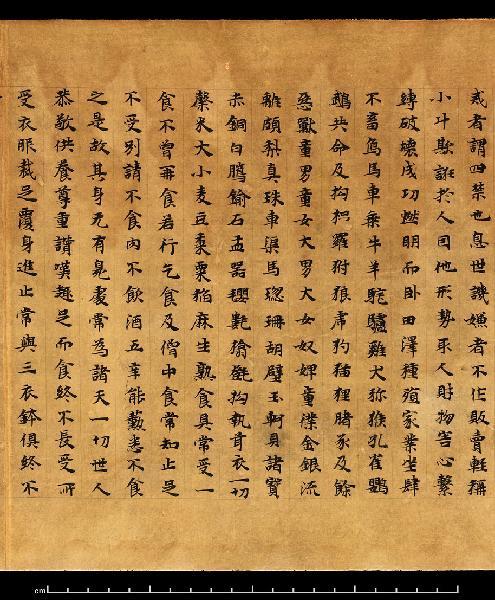 戒者謂四禁也息世譏嫌者不作販賣輕稱
小斗欺誑於人因他形勢取人財物害心繫
縛破壞成功燃明而卧田澤種殖家業坐肆
不畜鳥馬車乘牛羊駝驢雞犬獼猴孔雀鸚
鵡共命及拘枳羅犲狼虎豹猫狸猪豕及餘
惡獸童男童女大男大女奴婢童僕金銀流
離頗梨真珠車渠馬瑙珊胡璧玉軻貝諸寶
赤銅白鑞鍮石盂器氍毹毾㲪拘執毛衣一切
穀米大小麦豆黍粟稻麻生熟食具常受一
食不曾再食若行乞食及僧中食常知止足
不受別請不食肉不飲酒五辛能薰悉不食
之是故其身无有臭處常為諸天一切世人
恭敬供養尊重讃嘆趣足而食終不長受所
受衣服裁足覆身進止常與三衣鉢俱終不
cm